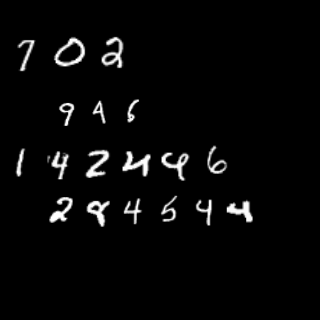 702
946
142446
284544